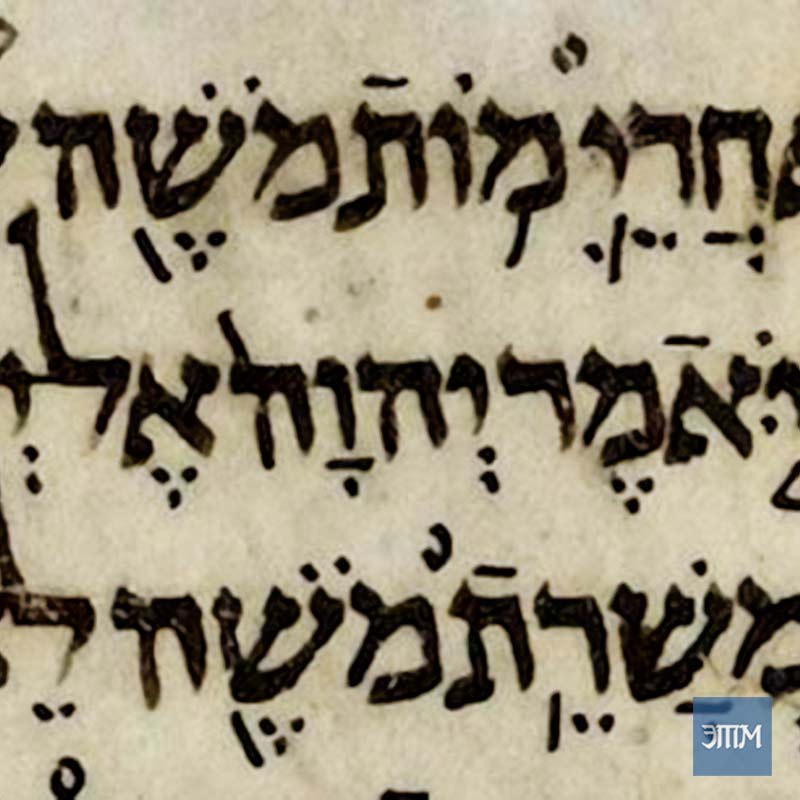 אַחֲרֵ֛י מ֥וֹתֿ מֹשֶׁ֖ה
וַיֹּ֤אֿמֶר יְהוָה֙ אֶל יְ
מְשָׁרֵ֥תֿ מֹשֶׁ֖ה לֵ